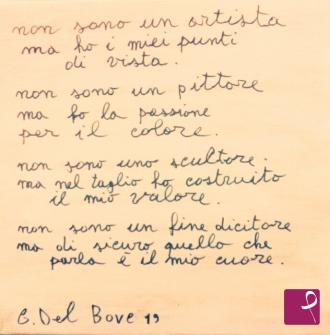 non sono un artista
ma ho i miei punti
di vista.
non sono un pittore
ma ho la passione
per il colore.
non sono uno scultore.
ma nel taglio ho costruito
il mio valore.
non sono un fine dicitore
ma di sicuro quello che
parla è il mio cuore.
C. Del Bove 19